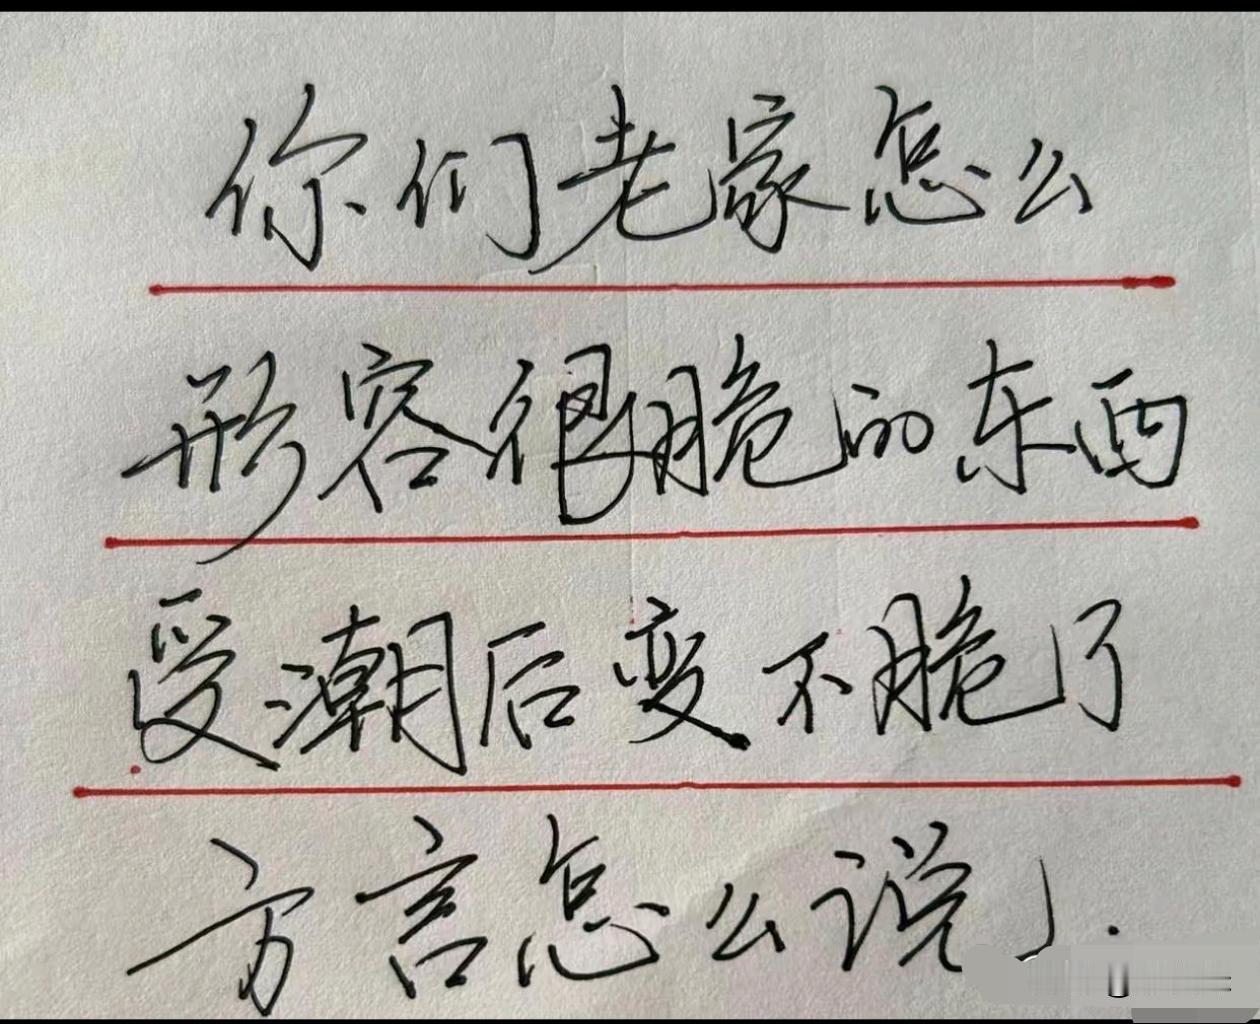 你们老家怎么
形容很脆的东西
受潮后变不脆了
方言怎么说